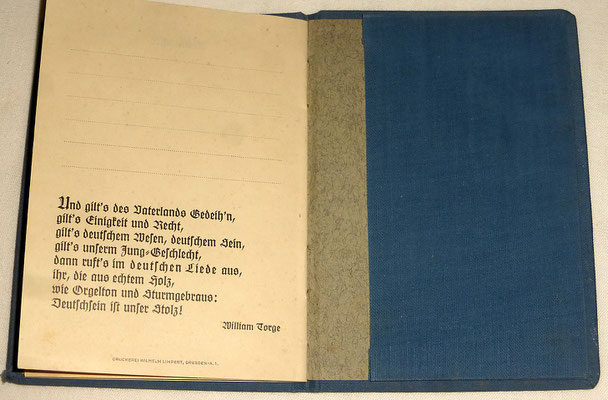 Und gilt's des Vaterlands Gedeih'n,
gilt's Einigkeit und Recht,
gilt's deutschem Wesen, deutschem Sein,
gilt's unserm Jung-Geschlecht,
dann ruft's im deutschen Liede aus,
ihr, die aus echtem Holz,
wie Orgelton und Sturmgebraus:
Deutschsein ist unser Stolz!
William Torge
DRUCKEREI WILHELM LIMPERT, DRESDEN-A. 1.